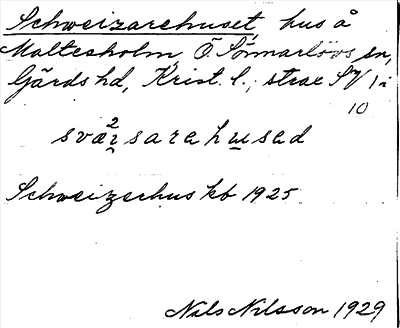 Schweizarehuset, hus å
Maltesholm, Ö. Sönnarlövs sn,
Gärds hd, Krist. l.,
10
Schweizerhus kb 1925
Nils Nilsson 1929